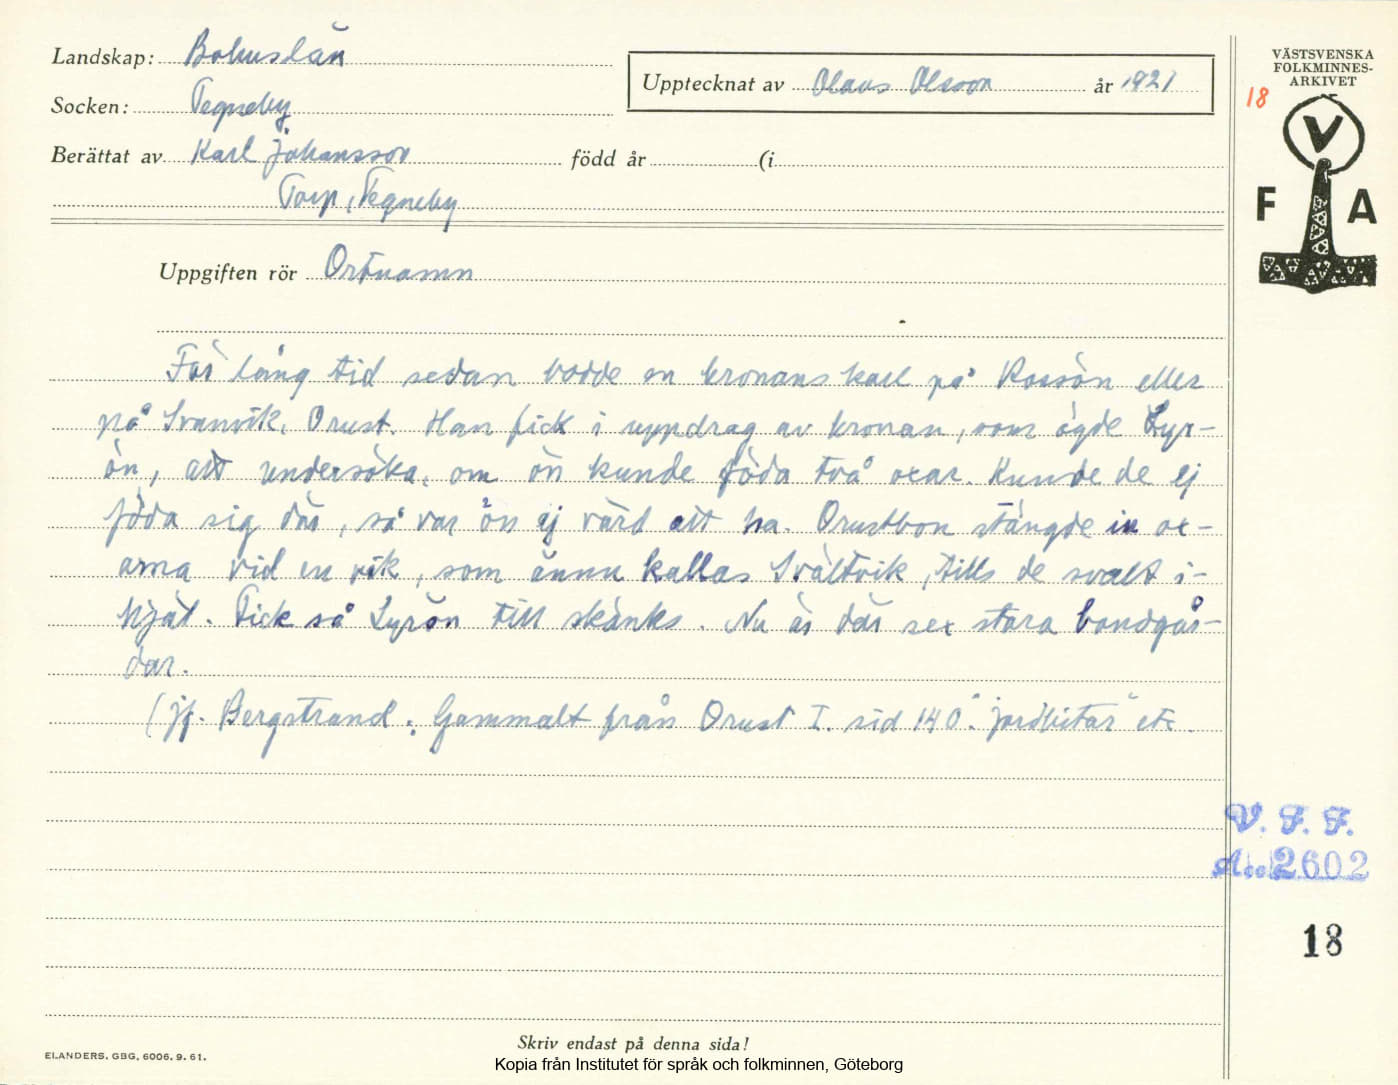 Landskap: Bohuslän
Socken: Tegneby
Berättat av Karl Johansson född år (i
Torp, Tegneby
Upptecknat av Olaus Olsson år 1921
VÄSTSVENSKA
FOLKMINNES-
ARKIVET
18
V
F A
Uppgiften rör Ortnamn
För lång tid sedan bodde en kronans karl på Rossön eller
på Svanvik, Orust. Han fick i uppdrag av kronan, som ägde Lyr-
ön, att undersöka, om ön kunde föda två oxar. Kunde de ej
föda sig där, så var ön ej värd att ha. Orustbon stängde in ox-
arna vid en vik, som ännu kallas Svältvik, tills de svalt i-
hjäl. Fick så Lyrön till skänks. Nu är där sex stora bondgår-
dar.
(jf. Bergstrand: Gammalt från Orust I. sid 140 "jordbitar" etc.
V. F. F.
Acc. 2602
18
Skriv endast på denna sida!
ELANDERS, GBG, 6006. 9. 61.
Kopia från Institutet för språk och folkminnen, Göteborg